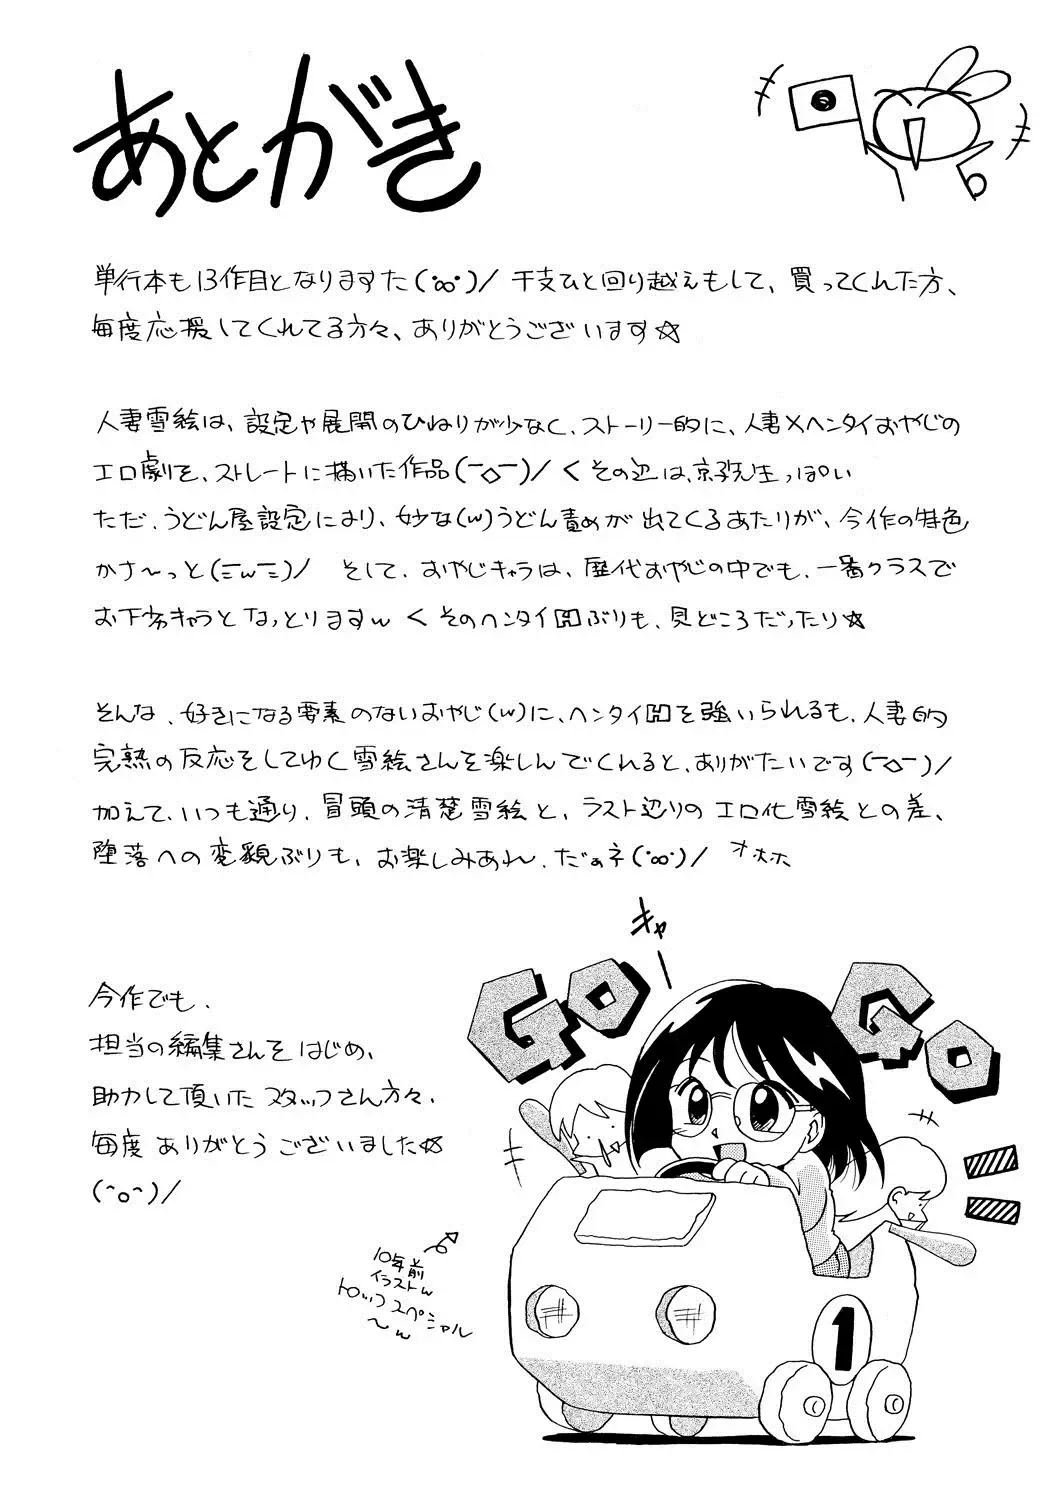 あとがき
単行本も13作目となりますた(・ω・)/ 干支ひと回り越えもして、買ってくれた方、
毎度応援してくれてる方々、ありがとうございます☆
人妻雪絵は、設定や展開のひねりが少なく、ストーリー的に、人妻×ヘンタイおやじの
エロ劇を、ストレートに描いた作品(￣◇￣)/ くその辺は、京子先生っぽい
ただ、うどん屋設定により、妙な(w)うどん責めが出てくるあたりが、今作の特色
かさ〜っと(ΞwΞ)/ そして、おやじキャラは、歴代おやじの中でも、一番クラスで
お下劣キャラとなっとりますw くそのヘンタイHぶりも、見どころだったり☆
そんな、好きになる要素のないおやじ(w)に、ヘンタイHを強いられるも、人妻的
完熟の反応をしてゆく雪絵さんを楽しんでくれると、ありがたいです(￣◇￣)/
加えて、いつも通り、冒頭の清楚雪絵と、ラスト辺りのエロ化雪絵との差、
堕落への変貌ぶりも、お楽しみあれ、だぁネ(・ω・)/ オホホ
キャー
GO GO
今作でも、
担当の編集さんをはじめ、
助力して頂いたスタッフさん方々、
毎度ありがとうございました☆
(^o^)/
10年前
イラストw
トップスペシャル
〜w
1